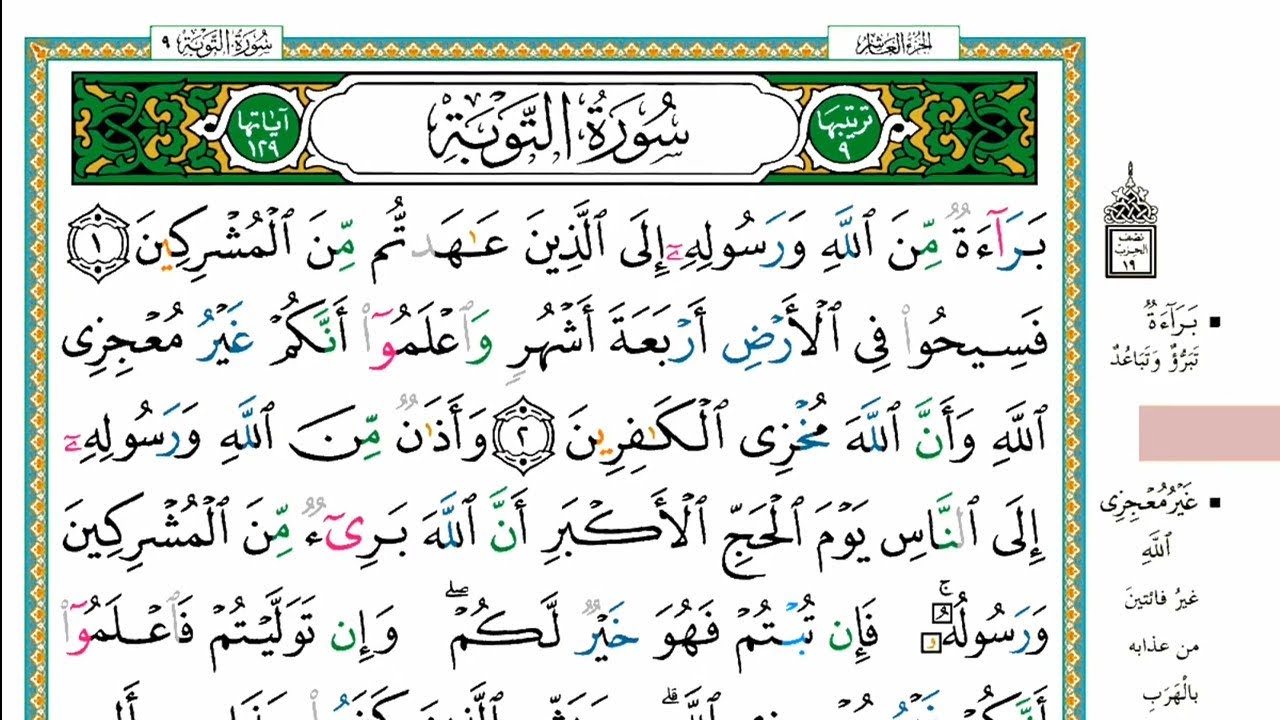 الجزء العاشر
سُورَةُ التَّوْبَةِ ٩
تَرتيبها ٩
سُورَةُ التَّوْبَةِ
آيَاتها ١٢٩
بَرَآءَةٌ مِّنَ ٱللَّهِ وَرَسُولِهِۦٓ إِلَى ٱلَّذِينَ عَٰهَدتُّم مِّنَ ٱلْمُشْرِكِينَ ١
فَسِيحُوا۟ فِى ٱلْأَرْضِ أَرْبَعَةَ أَشْهُرٍ وَٱعْلَمُوٓا۟ أَنَّكُمْ غَيْرُ مُعْجِزِى
ٱللَّهِ وَأَنَّ ٱللَّهَ مُخْزِى ٱلْكَٰفِرِينَ ٢ وَأَذَٰنٌ مِّنَ ٱللَّهِ وَرَسُولِهِۦٓ
إِلَى ٱلنَّاسِ يَوْمَ ٱلْحَجِّ ٱلْأَكْبَرِ أَنَّ ٱللَّهَ بَرِىٓءٌ مِّنَ ٱلْمُشْرِكِينَ
وَرَسُولُهُۥ ۚ فَإِن تُبْتُمْ فَهُوَ خَيْرٌ لَّكُمْ ۖ وَإِن تَوَلَّيْتُمْ فَٱعْلَمُوٓا۟
نصف
الحزب
١٩
بَرَآءَةٌ
تَبَرُّؤٌ وَتَبَاعُدٌ
غَيْرُ مُعْجِزِى
ٱللَّهِ
غيرُ فائتينَ
من عذابه
بالْهَرَبِ